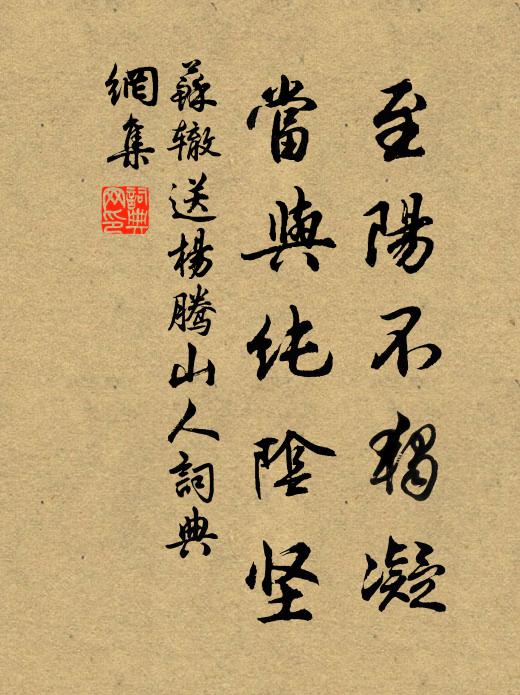 至陽不獨凝
當與纯陰坚
蘇辙送楊騰山人詞典
網集
詞典
网印